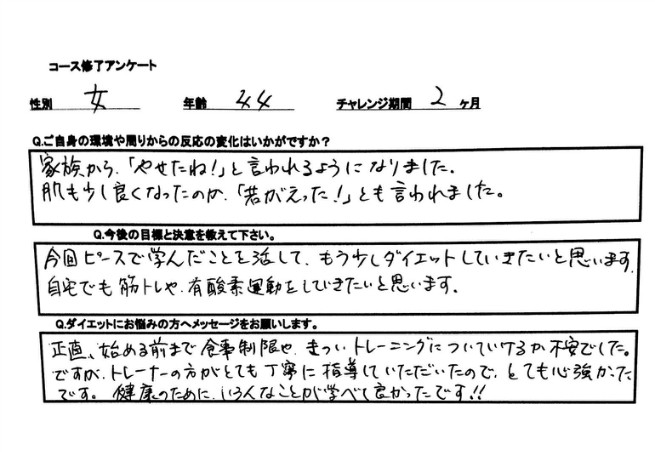 コース修了アンケート
性別 女 年齢 44 チャレンジ期間 2 ヶ月
Q.ご自身の環境や周りからの反応の変化はいかがですか？
家族から、「やせたね！」と言われるようになりました。
肌も少し良くなったのか、「若がえった！」とも言われました。
Q.今後の目標と決意を教えて下さい。
今回ピースで学んだことを活して、もう少しダイエットしていきたいと思います。
自宅でも筋トレや、有酸素運動をしていきたいと思います。
Q.ダイエットにお悩みの方へメッセージをお願いします。
正直、始める前まで食事制限や、きついトレーニングについていけるか不安でした。
ですが、トレーナーの方がとても丁寧に指導していただいたので、とても心強かった
です。健康のために、いろんなことが学べて良かったです!!